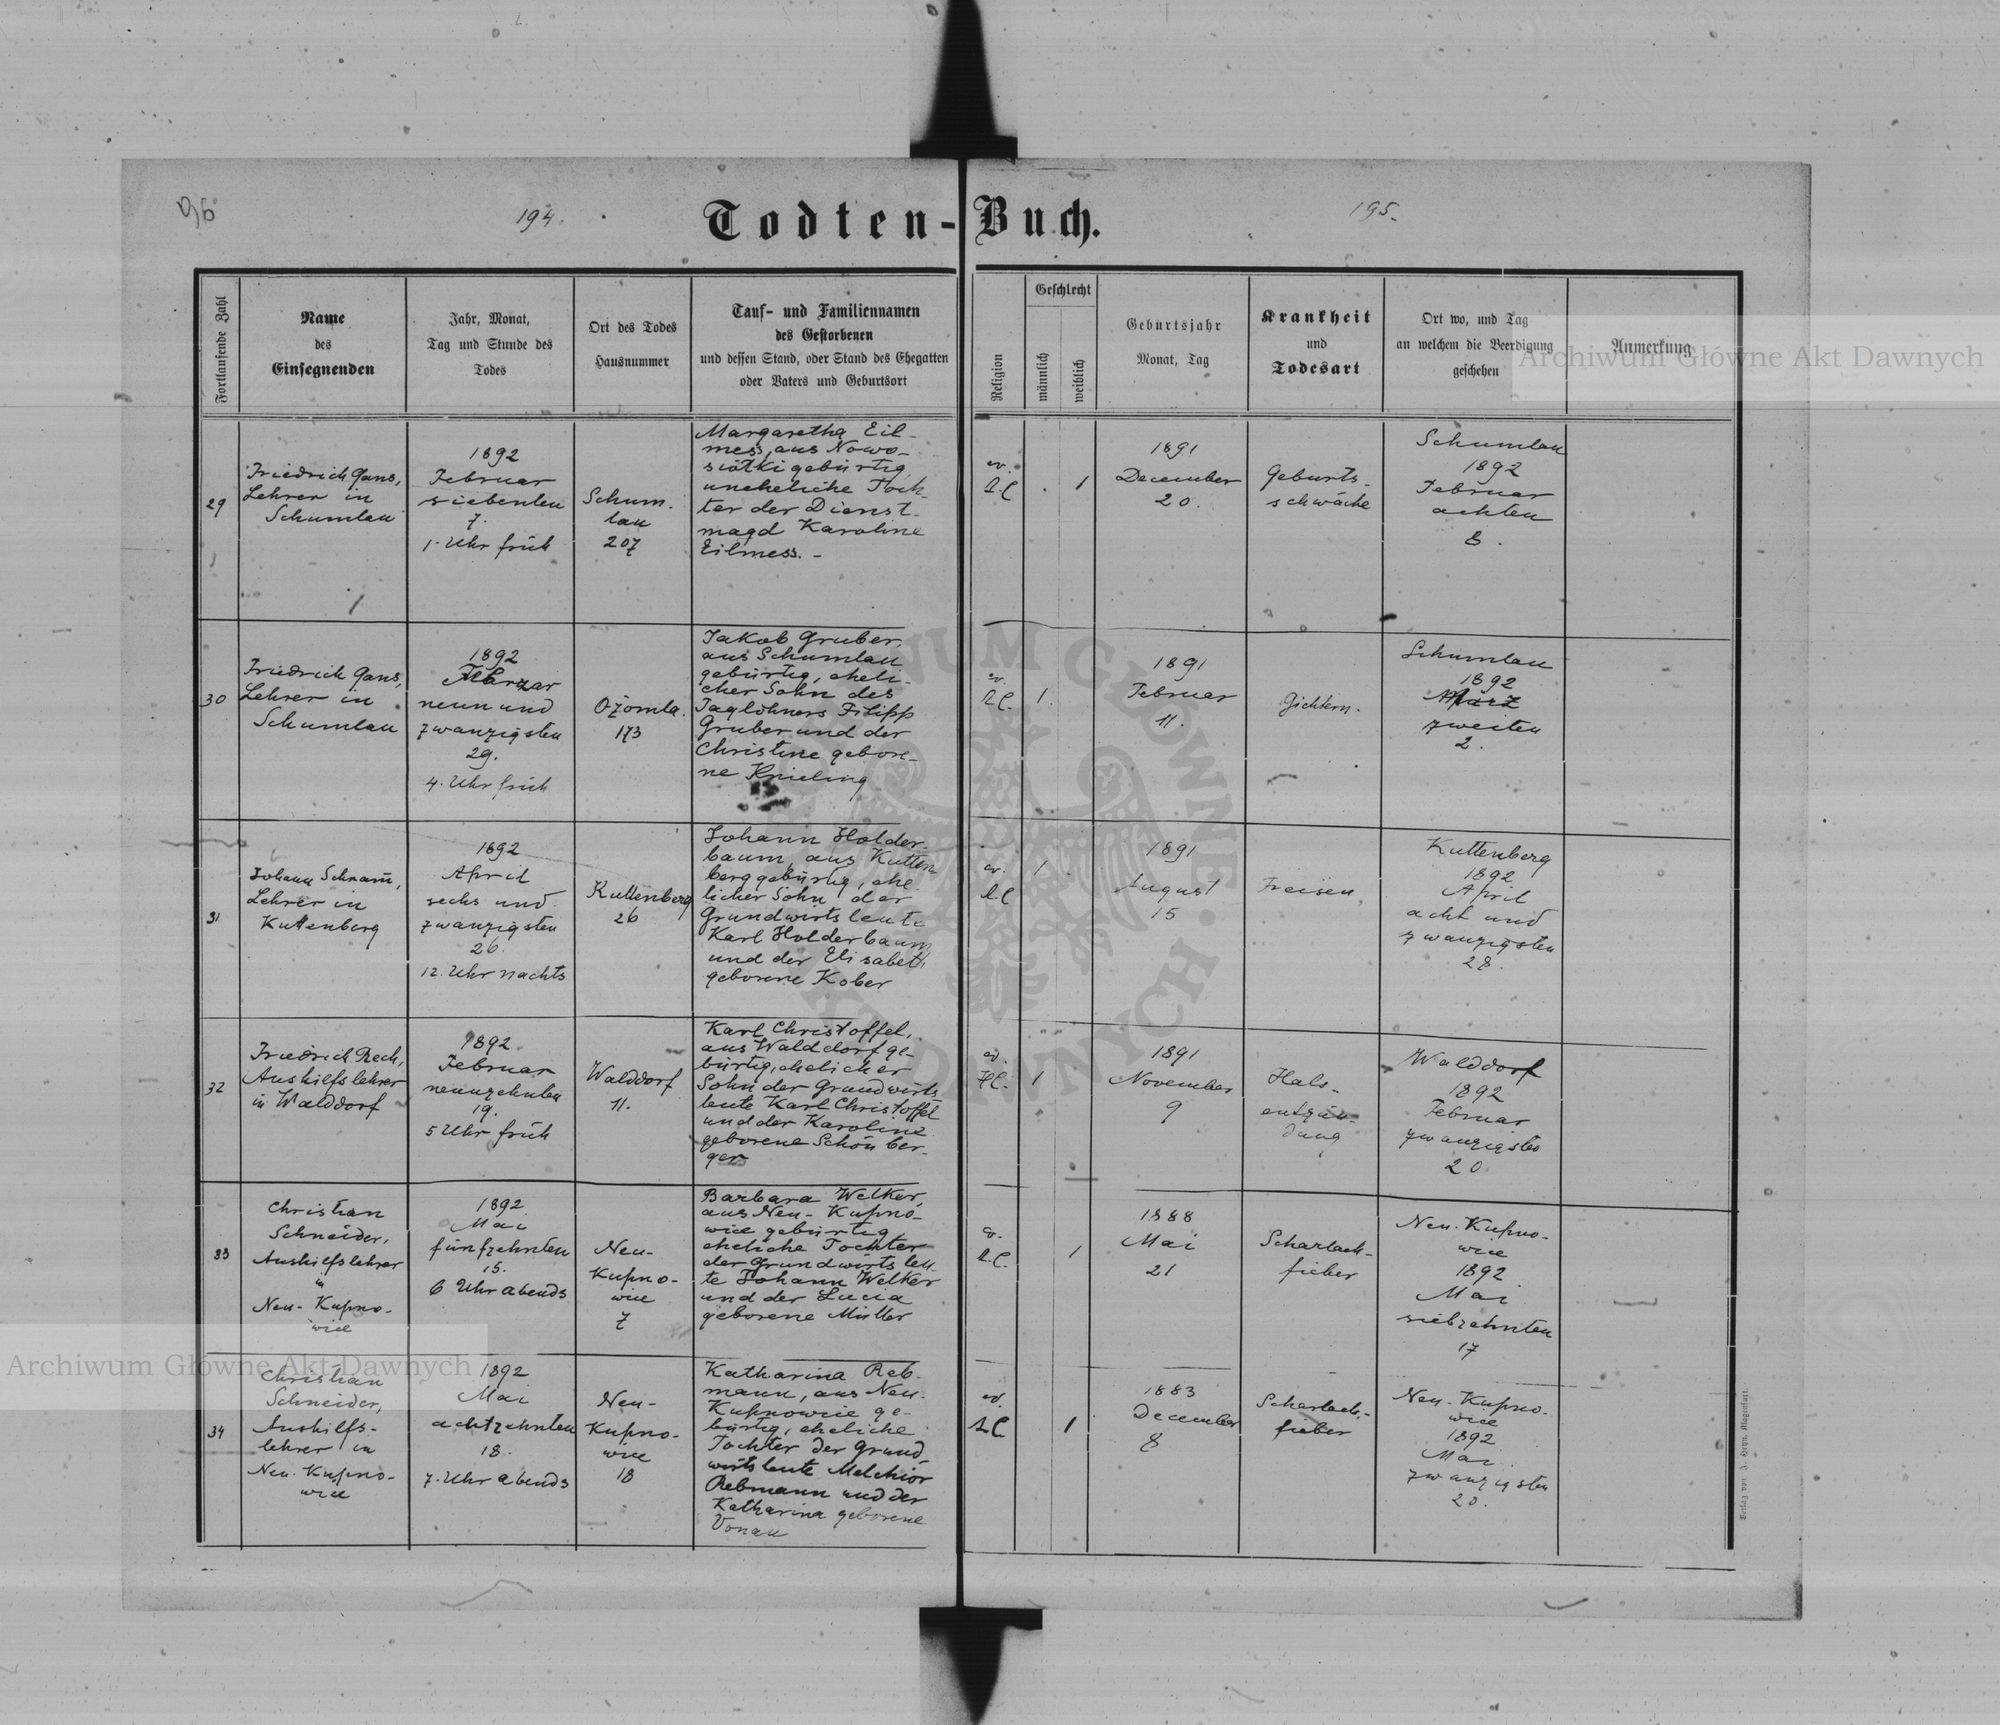 96
194.
195.
Todten-Buch.
Fortlaufende Zahl
Name
des
Einsegnenden
Jahr, Monat,
Tag und Stunde des
Todes
Ort des Todes
Hausnummer
Tauf- und Familiennamen
des Gestorbenen
und dessen Stand, oder Stand des Ehegatten
oder Vaters und Geburtsort
Religion
Geschlecht
männlich
weiblich
Geburtsjahr
Monat, Tag
Krankheit
und
Todesart
Ort wo, und Tag
an welchem die Beerdigung
geschehen
Anmerkung
Archiwum Główne Akt Dawnych
29
Friedrich Gans,
Lehrer in
Schumlau
1892
Februar
siebenten
7.
1. Uhr früh
Schum-
lau
207
Margaretha Eil-
mess, aus Nowo-
siólki gebürtig,
uneheliche Toch-
ter der Dienst-
magd Karoline
Eilmess. -
ev.
A.C
1
1891
December
20.
Geburts-
schwäche
Schumlau
1892
Februar
achten
8.
30
Friedrich Gans,
Lehrer in
Schumlau
1892
neun und
zwanzigsten
29.
4. Uhr früh
Ożomla.
173
Jakob Gruber,
aus Schumlau
gebürtig, eheli-
cher Sohn des
Taglöhners Filipp
Gruber und der
Christine gebore-
ne Knieling
ev.
A.C.
1.
1891
Februar
11.
Gichtern.
Schumlau
1892
März
zweiten
2.
31
Johann Schram,
Lehrer in
Kuttenberg
1892
April
sechs und
zwanzigsten
26.
12. Uhr nachts
Kuttenberg
26
Johann Holder-
baum, aus Kutten-
berg gebürtig, ehe-
licher Sohn der
Grundwirtsleute
Karl Holderbaum
und der Elisabeth
geborene Kober
ev.
A.C
1.
1891
August
15
Freisen
Kuttenberg
1892
April
acht und
zwanzigsten
28.
32
Friedrich Rech,
Aushilfslehrer
in Walddorf
1892
Februar
neunzehnten
19.
5 Uhr früh
Walddorf
11.
Karl Christoffel,
aus Walddorf ge-
bürtig, ehelicher
Sohn der Grundwirts
leute Karl Christoffel
und der Karoline
geborene Schönber-
ger
ev.
H.C.
1
1891
November
9
Hals-
entzün-
dung
Walddorf
1892
Februar
zwanzigsten
20
33
Christian
Schneider,
Aushilfslehrer
in
Neu-Kupno-
wice
1892
Mai
fünfzehnten
15.
6 Uhr abends
Neu-
Kupno-
wice
7
Barbara Welker,
aus Neu-Kupno-
wice gebürtig,
eheliche Tochter
der Grundwirtsleu-
te Johann Welker
und der Lucia
geborene Müller
ev.
A.C.
1
1888
Mai
21
Scharlach-
fieber
Neu-Kupno-
wice
1892
Mai
siebzehnten
17
34
Christian
Schneider,
Aushilfs-
lehrer in
Neu-Kupno-
wice
1892
Mai
achtzehnten
18.
7. Uhr abends
Neu-
Kupno-
wice
18
Katharina Reb-
mann, aus Neu-
Kupnowice ge-
bürtig, eheliche
Tochter der Grund-
wirtsleute Melchior
Rebmann und der
Katharina geborene
Vonau
ev.
A.C
1
1883
December
8
Scharlach-
fieber
Neu-Kupno-
wice
1892
Mai
zwanzigsten
20.
Archiwum Główne Akt Dawnych